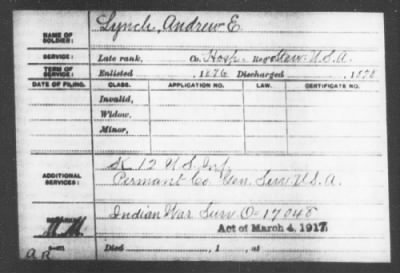 Lynch, Andrew E.
NAME OF SOLDIER:
SERVICE: Late rank, Co. Hosp. Reg't Stew. U.S.A.
TERM OF SERVICE: Enlisted , 1876 Discharged , 1878
DATE OF FILING. CLASS. APPLICATION NO. LAW. CERTIFICATE NO.
Invalid,
Widow,
Minor,
K 12 U S Inf
ADDITIONAL SERVICES: Permant Co. Gen. Serv. U.S.A.
Indian War Surv. O-17048
Act of March 4, 1917.
Died , 1 , at